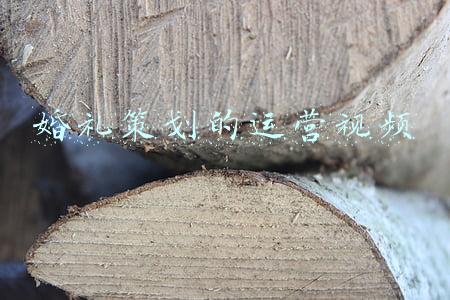 婚礼策划的运营视频